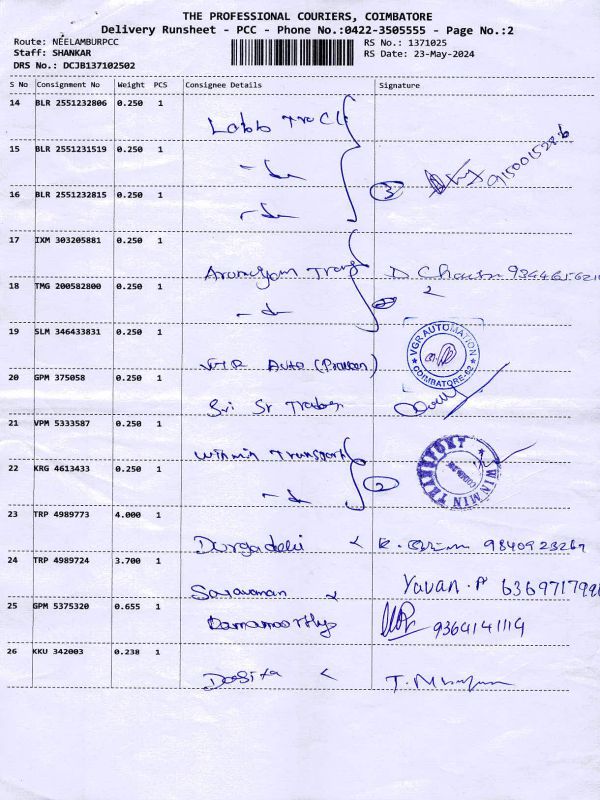 THE PROFESSIONAL COURIERS, COIMBATORE
Delivery Runsheet - PCC - Phone No.:0422-3505555 - Page No.:2
Route: NEELAMBURPCC RS No.: 1371025
Staff: SHANKAR RS Date: 23-May-2024
DRS No.: DCJB137102502
S No Consignment No Weight PCS Consignee Details Signature
14 BLR 2551232806 0.250 1
15 BLR 2551231519 0.250 1
16 BLR 2551232815 0.250 1 3
17 IXM 303205881 0.250 1
18 TMG 200582800 0.250 1 2
19 SLM 346433831 0.250 1 VGR AUTOMATION COIMBATORE-62
20 GPM 375058 0.250 1
21 VPM 5333587 0.250 1 Winmin Transport
22 KRG 4613433 0.250 1 2 WINMIN TRANSPORT
23 TRP 4989773 4.000 1 Durgadevi 9840923267
24 TRP 4989724 3.700 1 Saravanan Yavan.P
25 GPM 5375320 0.655 1 Ramamoorthy 9364141114
26 KKU 342003 0.238 1